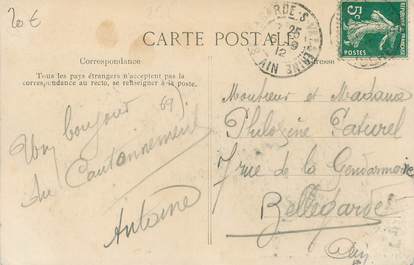 20 €
CARTE POSTALE
Correspondance
Adresse
Tous les pays étrangers n'acceptent pas la
correspondance au recto, se renseigner à la poste.
69)
Un bonjour
du Cantonnement
Antoine
Monsieur et Madame
Philozine Paturel
7 rue de la Gendarmerie
Bellegarde
Ain
5c
25
12
AIN